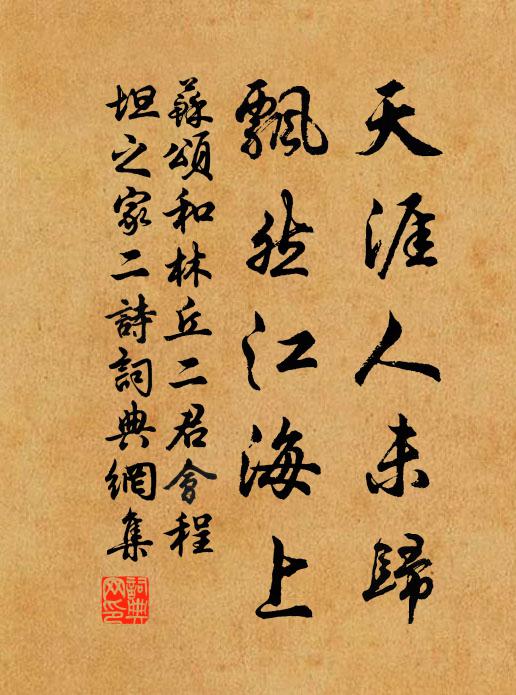 天涯人未歸
飄然江海上
蘇頌和林丘二君會程
坦之家二詩詞典網集
詞典網印